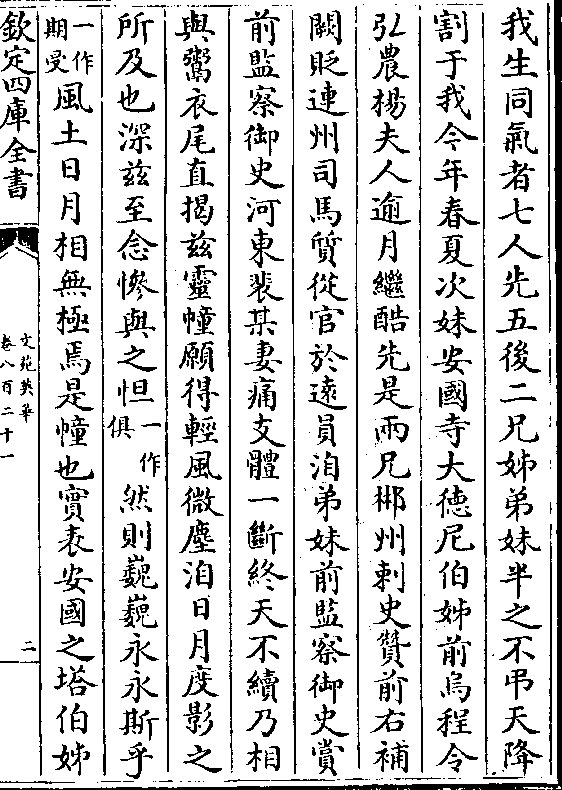 我生同氣者七人先五後二兄姊弟妹半之不弔天降
割于我今年春夏次妹安國寺大徳尼伯姊前烏程令
弘農楊夫人逾月繼酷先是兩兄郴州刺史贊前右補
闕貶連州司馬質從官於遠員洎弟妹前監察御史賞
前監察御史河東裴某妻痛支體一斷終天不續乃相
與鬻衣尾直揭兹靈幢願得輕風微塵洎日月度影之
所及也深兹至念慘與之怛一作俱然則巍巍永永斯乎
一作期受風土日月相無極焉是幢也實表安國之塔伯姊
欽定四庫全書
文苑英華
卷八百二十一
二